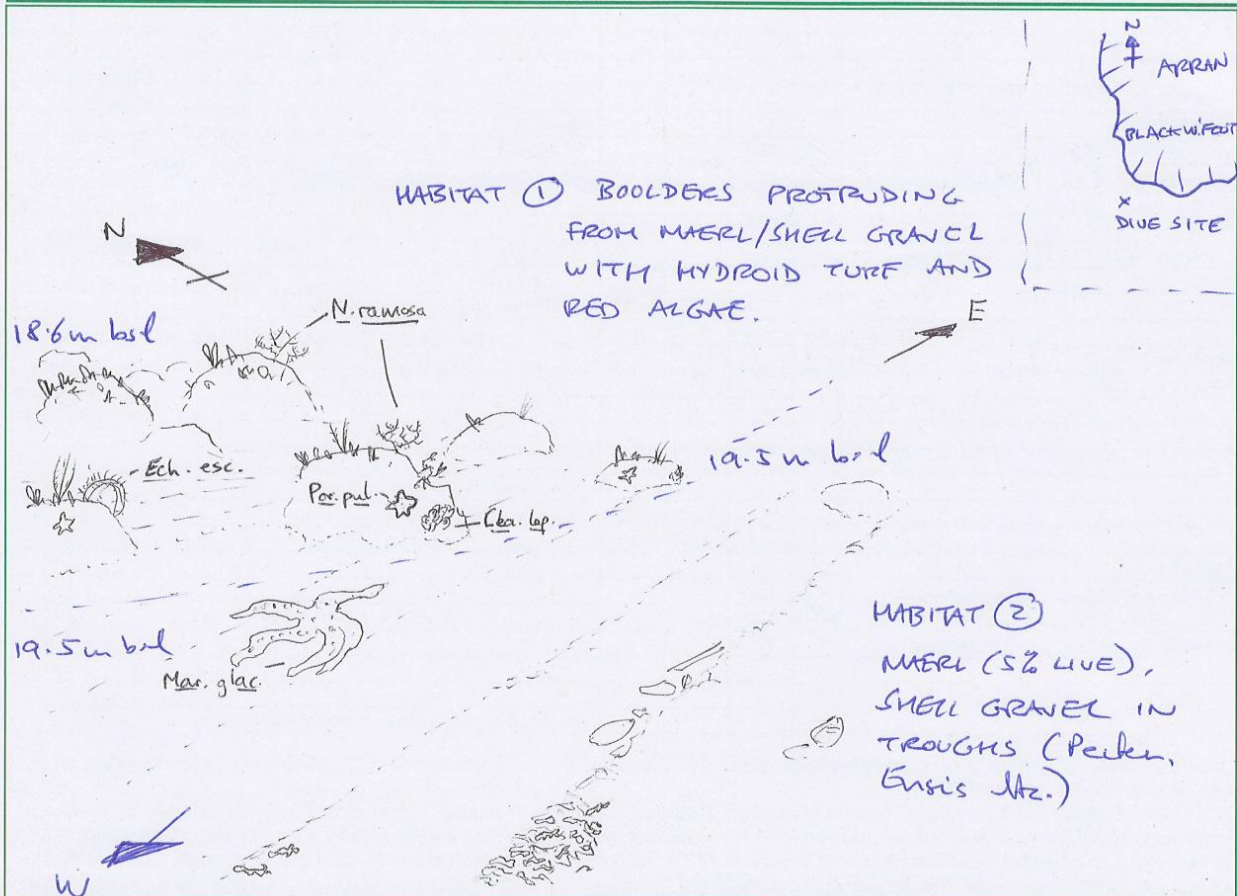 N
ARRAN
BLACKWFOOT
x
DIVE SITE
HABITAT ① BOOLDERS PROTRUDING
FROM MAERL/SHELL GRAVEL
WITH HYDROID TURF AND
RED ALGAE.
N
E
N. ramosa
18.6m bsl
Ech. esc.
19.5m bsl
Por. pul.
19.5m bsl
Mar. glac.
HABITAT ②
MAERL (5% LIVE),
SHELL GRAVEL IN
TROUGHS (Pecten,
Ensis etc.)
W